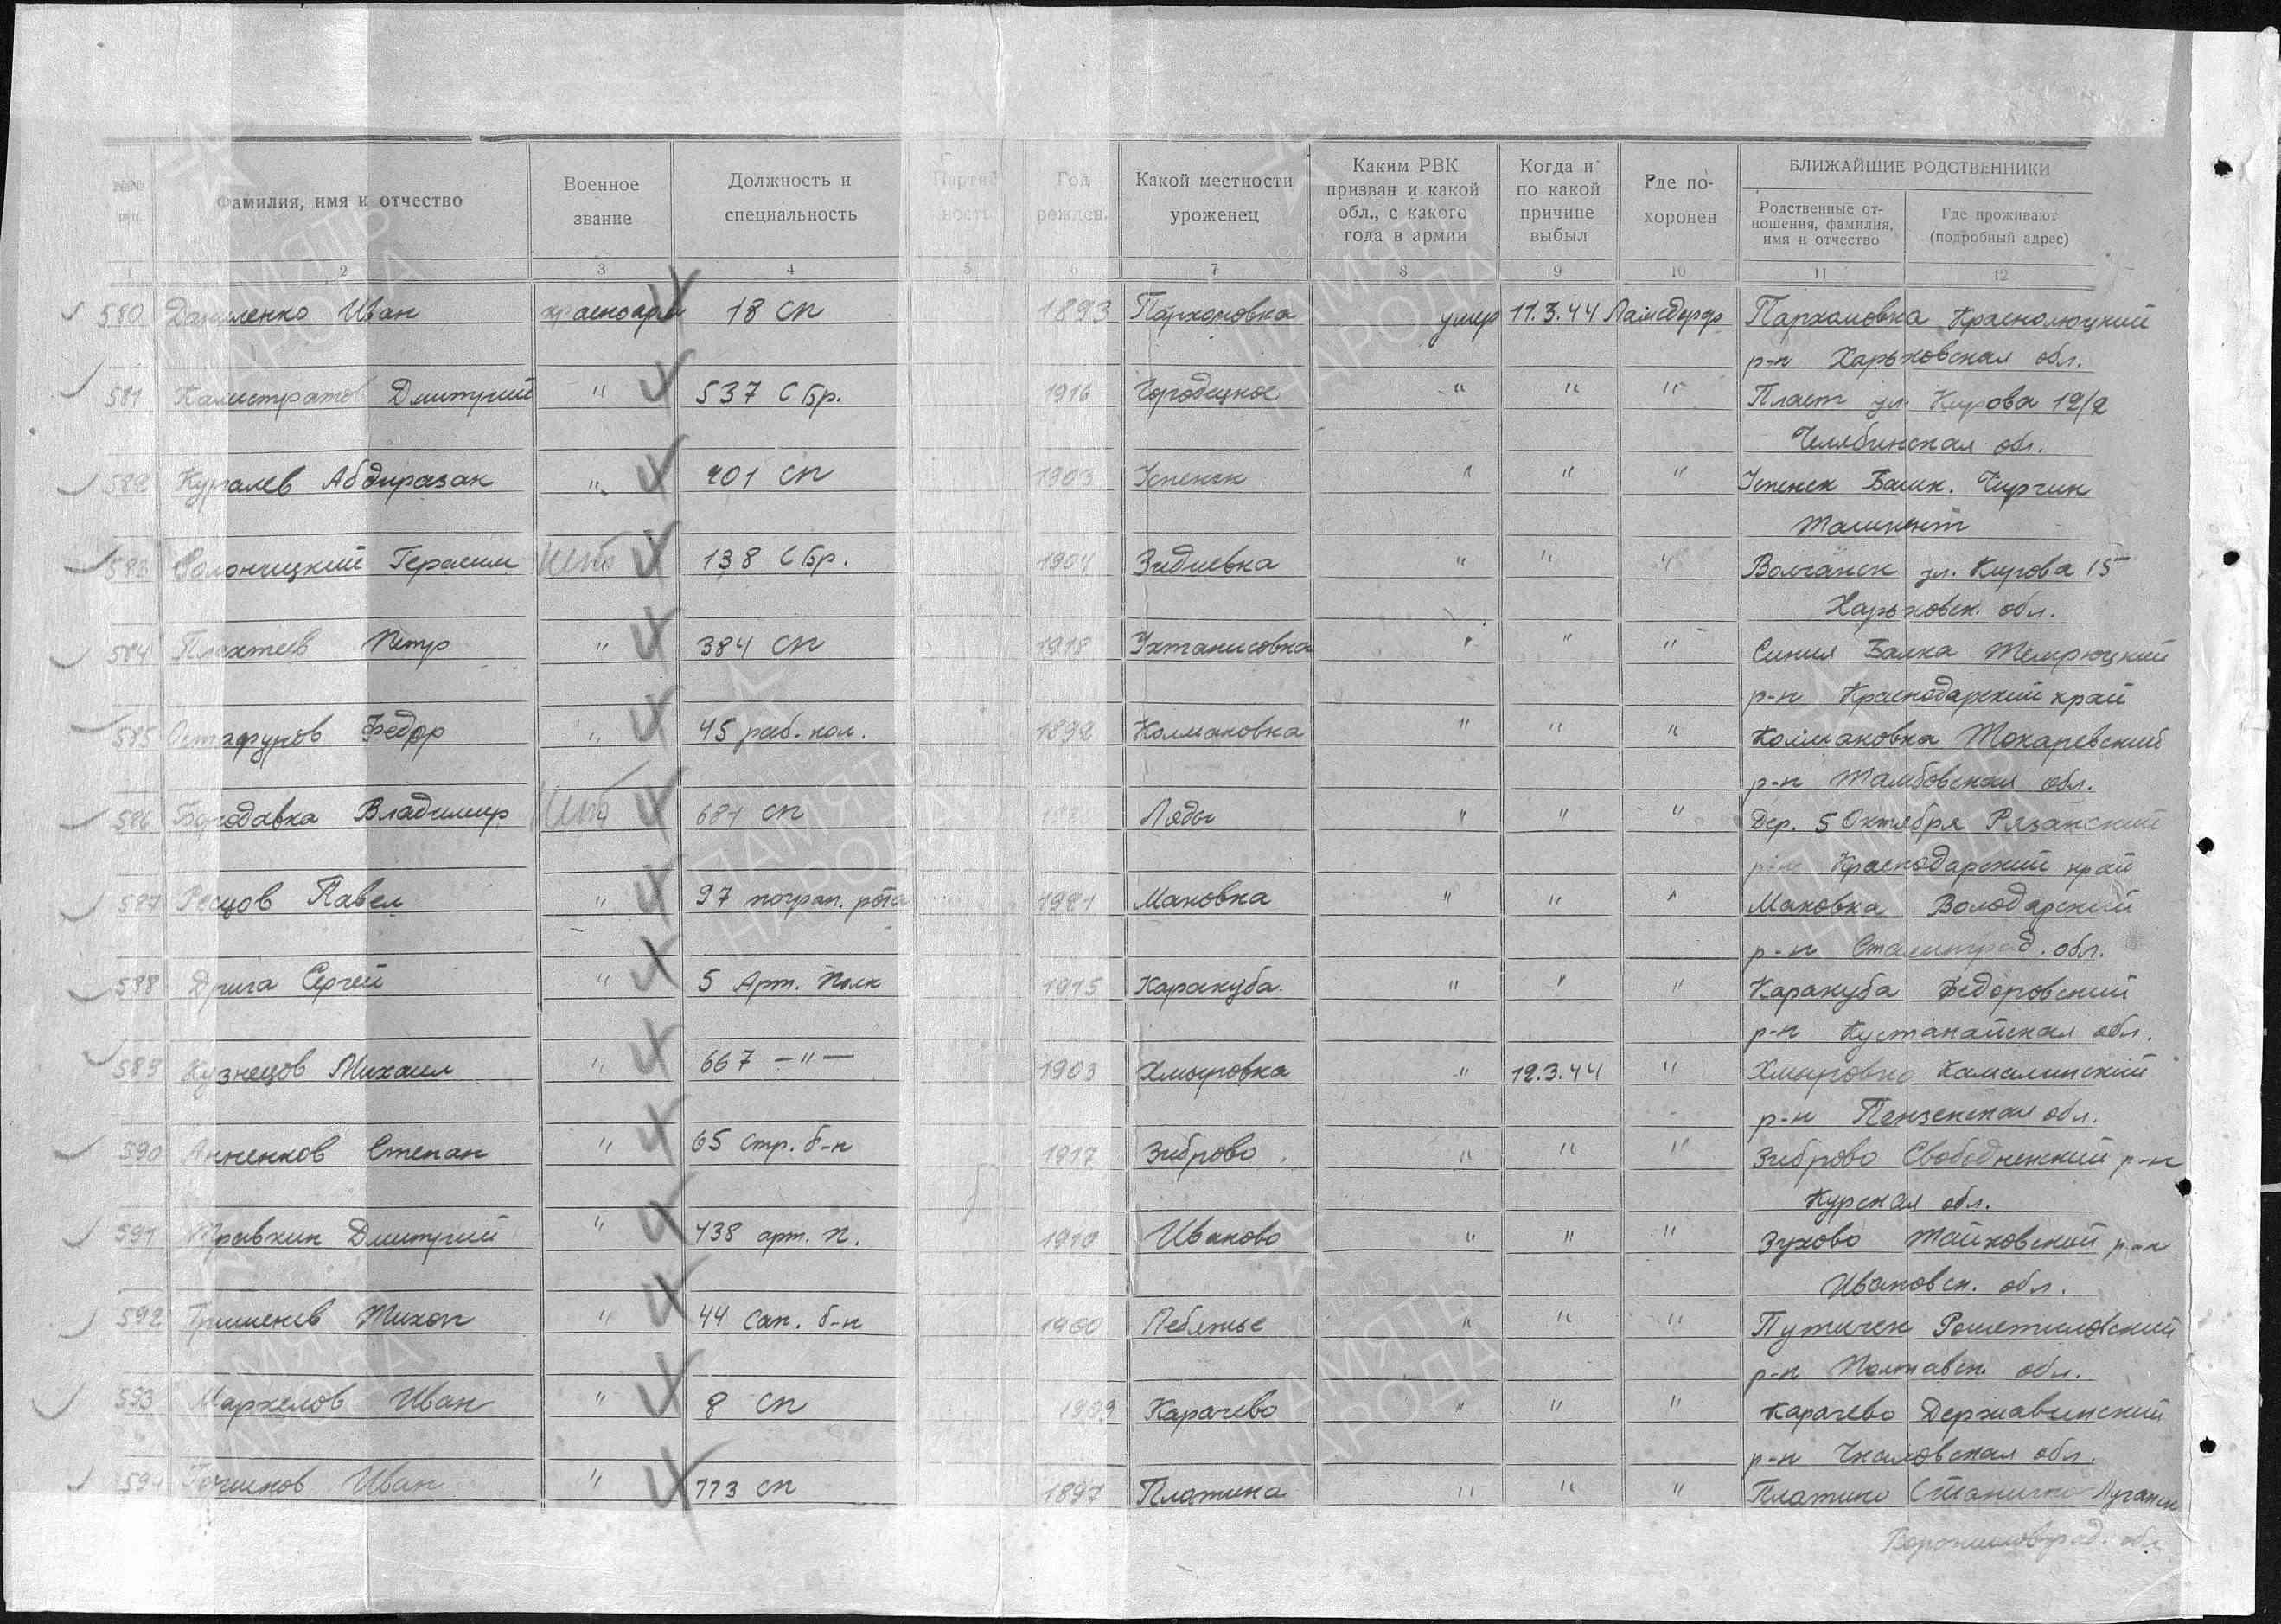 №№ Фамилия, имя и отчество Военное звание Должность и специальность Партийность Год рожден. Какой местности уроженец Каким РВК призван и какой обл., с какого года в армии Когда и по какой причине выбыл Где похоронен БЛИЖАЙШИЕ РОДСТВЕННИКИ
Родственные отношения, фамилия, имя и отчество Где проживают (подробный адрес)
1 2 3 4 5 6 7 8 9 10 11 12
580 Даниленко Иван красноарм 18 сп 1893 Пархомовка умер 11.3.44 Ламсдорф Пархомовка Краснолюцкий
р-н Харьковская обл.
581 Калистратов Дмитрий " 537 С бр. 1916 Городецкое " " " Пласт ул. Кирова 12/2
Челябинская обл.
582 Кургалев Абдиразак " 201 сп 1903 Успенск " " " Успенск Башк. Чирчик
Ташкент
583 Солоницкий Герасим 138 С бр. 1904 Зидиевка " " " Волчанск ул. Кирова 15
Харьковск. обл.
584 Плахтеев Петр " 384 сп 1918 Ухтанисовка " " " Синия Балка Темрюцкий
р-н Краснодарский край
585 Остафуров Федор " 45 раб. кол. 1892 Колмановка " " " Колмановка Токаревский
р-н Тамбовская обл.
586 Бородавка Владимир 681 сп Ляды " " " Дер. 5 Октября Рязанский
р-н Краснодарский край
587 Павел " 97 погран. рота 1921 Маковка " " " Маковка Володарский
р-н Сталинград. обл.
588 Дрига Сергей " 5 Арт. Полк 1915 Каракуба " " " Каракуба Федоровский
р-н Кустанайская обл.
589 Кузнецов Михаил " 667 -"- 1903 Хмыровка " 12.3.44 " Хмыровка Камалинский
р-н Пензенская обл.
590 Анненков Степан " 65 стр. б-н 1917 Зиброво " " " Зиброво Свободненский р-н
Курская обл.
591 Травкин Дмитрий " 438 арт. п. 1910 Иваново " " " Зухово Тайковской р-н
Ивановск. обл.
592 Тихон " 44 сап. б-н 1900 Лебяжье " " " Путичек Рошетиловский
р-н Полтавск. обл.
593 Маркелов Иван " 8 сп Карачево " " " Карачево Державинский
р-н Чкаловская обл.
594 Иван " 773 сп 1897 Платина " " " Платина Станично Луганск
Ворошиловград. обл
ПАМЯТЬ НАРОДА